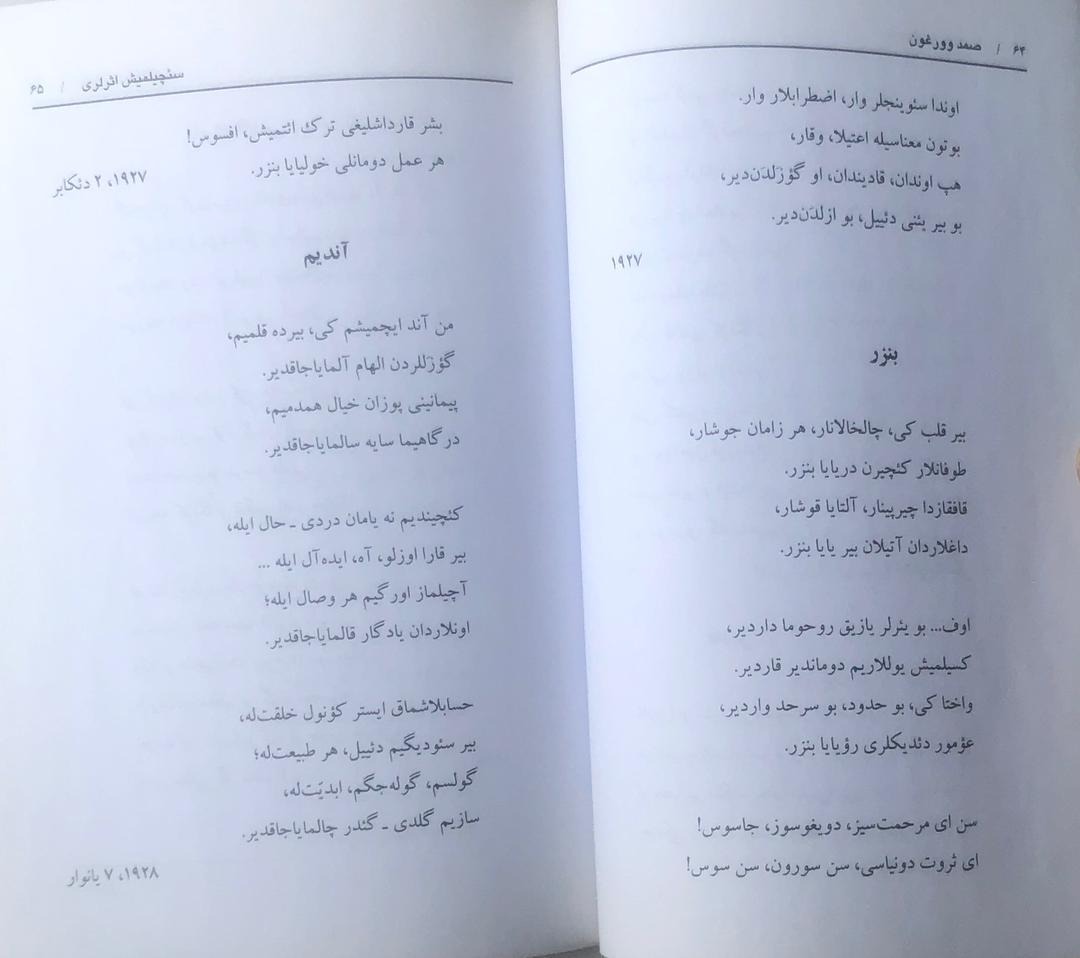 ۶۴ / صمد وورغون
اوندا سئوینجلر وار، اضطرابلار وار.
بوتون معناسیله اعتیلا، وقار،
هپ اوندان، قادیندان، او گؤزَلدَن‌دیر،
بو بیر یئنی دئییل، بو ازلدَن‌دیر.
۱۹۲۷
بنزر
بیر قلب کی، چالخالانار، هر زامان جوشار،
طوفانلار کئچیرن دریایا بنزر.
قافقازدا چیرپینار، آلتایا قوشار،
داغلاردان آتیلان بیر یایا بنزر.
اوف... بو یئرلر یازیق روحوما داردیر،
کسیلمیش یوللاریم دوماندیر قاردیر.
واختا کی، بو حدود، بو سرحد واردیر،
عؤمور دئدیکلری رؤیایا بنزر.
سن ای مرحمت‌سیز، دویغوسوز، جاسوس!
ای ثروت دونیاسی، سن سورون، سن سوس!
سئچیلمیش اثرلری / ۶۵
بشر قارداشلیغی ترک ائتمیش، افسوس!
هر عمل دومانلی خولیایا بنزر.
۱۹۲۷، ۲ دئکابر
آندیم
من آند ایچمیشم کی، بیرده قلمیم،
گؤزَللردن الهام آلمایاجاقدیر.
پیمانینی پوزان خیال همدمیم،
درگاهیما سایه سالمایاجاقدیر.
کئچیندیم نه یامان دردی ـ حال ایله،
بیر قارا اوزلو، آه، ایده‌آل ایله ...
آچیلماز اورگیم هر وصال ایله؛
اونلاردان یادگار قالمایاجاقدیر.
حسابلاشماق ایستر کؤنول خلقت‌له،
بیر سئودیگیم دئییل، هر طبیعت‌له؛
گولسم، گوله‌جگم، ابدیّت‌له،
سازیم گلدی ـ گئدر چالمایاجاقدیر.
۱۹۲۸، ۷ یانوار